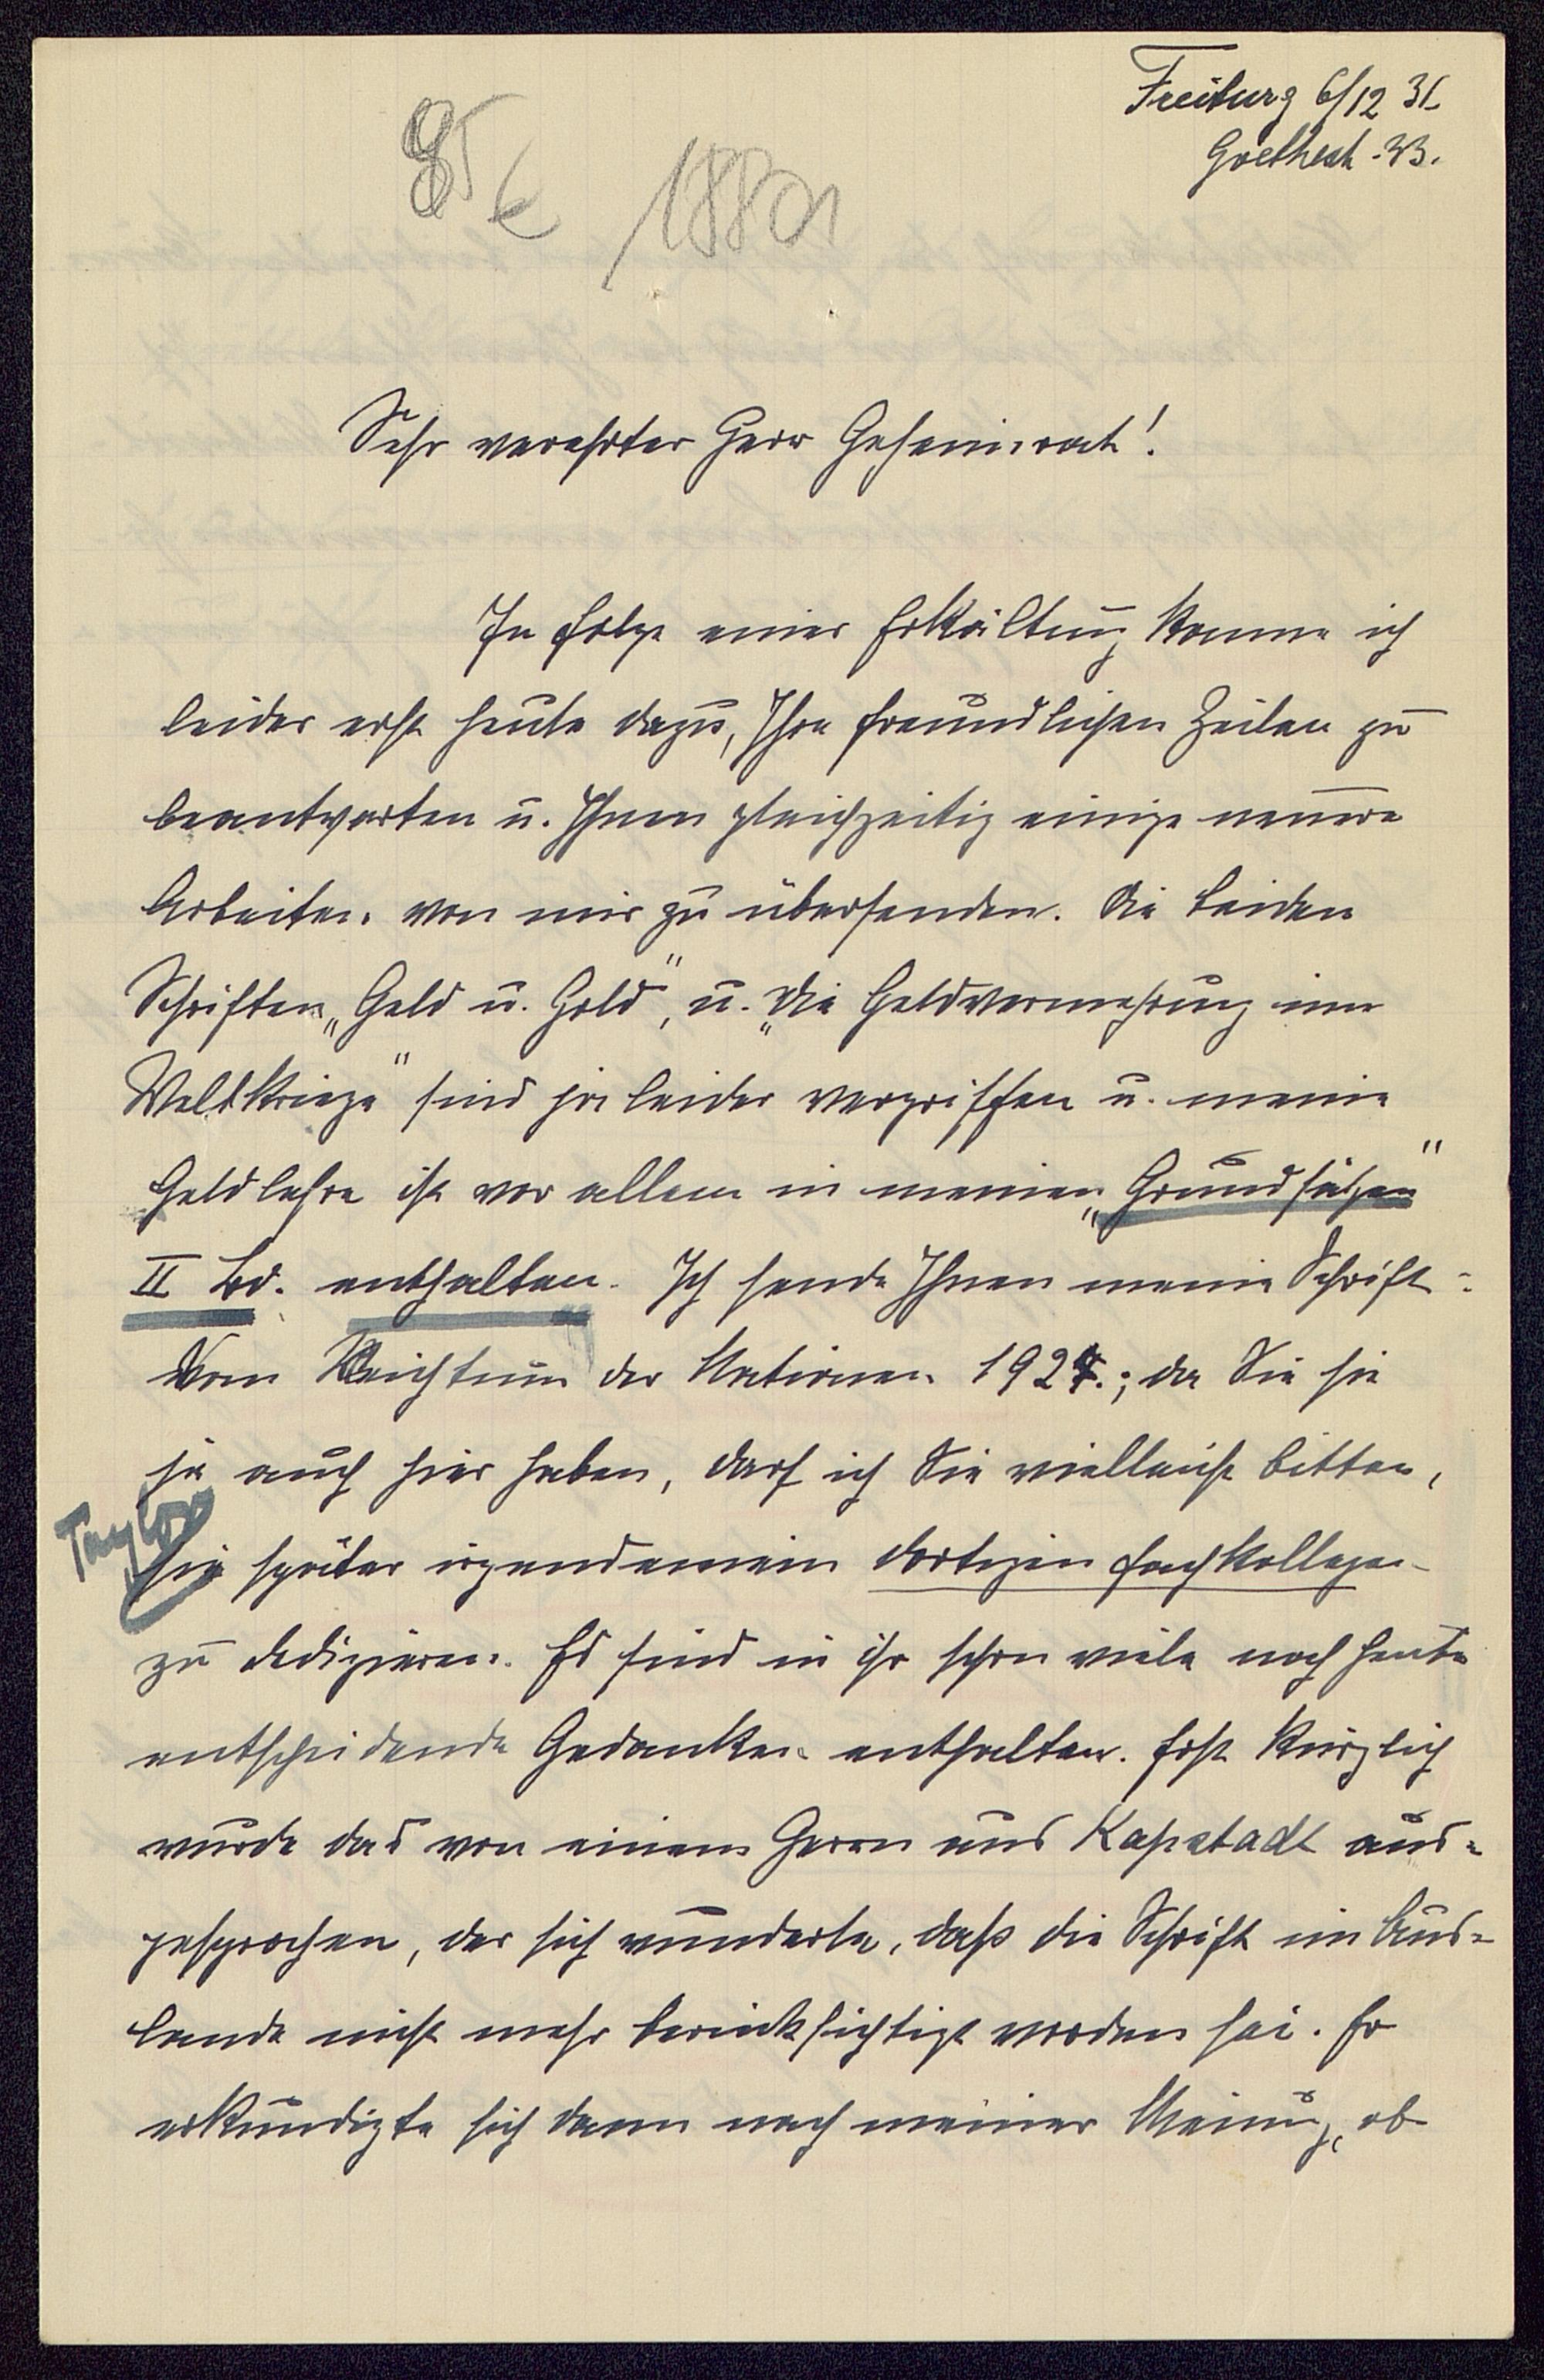 Freiburg 6/12 31
Goethestr. 33.
85 €
18801
Sehr verehrter Herr Geheimrat!
In Folge einer Erkältung komme ich
leider erst heute dazu, Ihre freundlichen Zeilen zu
beantworten u. Ihnen gleichzeitig einige neuere
Arbeiten von mir zu übersenden. Die beiden
Schriften „Geld u. Gold“, u. „Die Geldvermehrung im
Weltkriege“ sind ja leider vergriffen u. meine
Geldlehre ist vor allem in meinen „Grundsätzen“
II Bd. enthalten. Ich sende Ihnen meine Schrift:
Vom Reichtum der Nationen 192.; da Sie sie
ja auch hier haben, darf ich Sie vielleicht bitten,
Taylor
sie später irgendeinem dortigen Fachkollegen
zu dedizieren. Es sind in ihr schon viele noch heute
entscheidende Gedanken enthalten. Erst kürzlich
wurde das von einem Herrn aus Kapstadt aus-
gesprochen, der sich wunderte, daß die Schrift im Aus-
lande nicht mehr berücksichtigt worden sei. Er
erkundigte sich dann nach meiner Meinung, ob